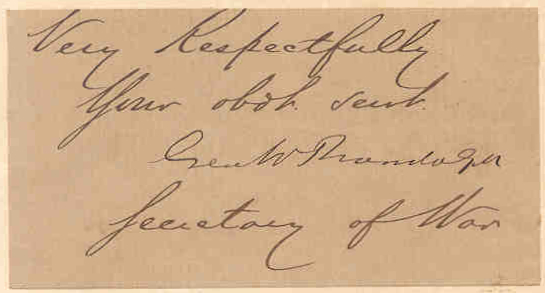 Very Respectfully
Your obdt. servt.
Geo W Randolph
Secretary of War